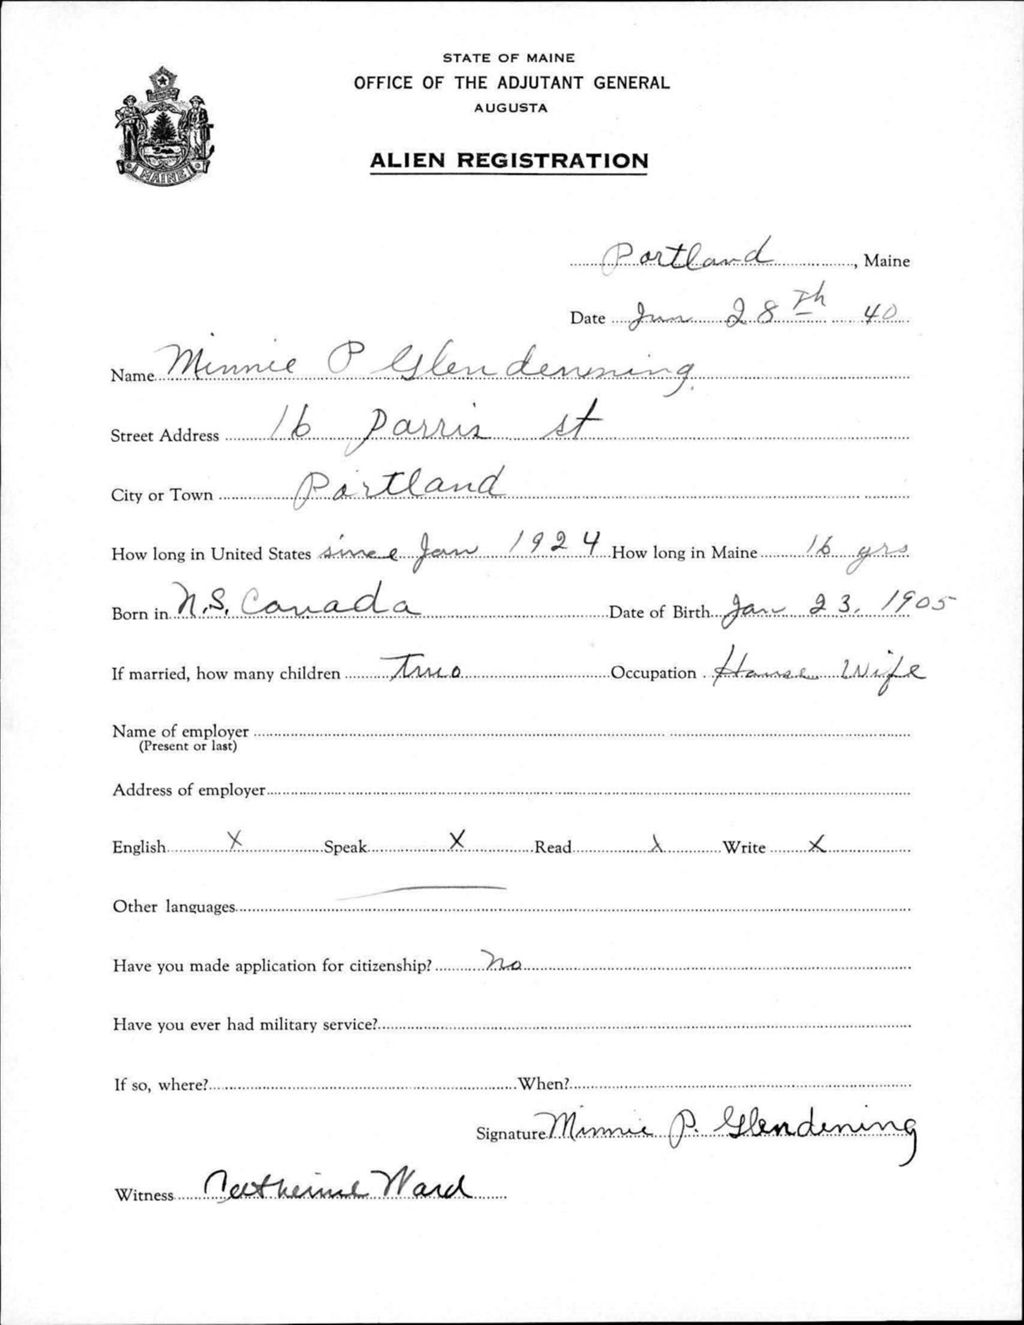 STATE OF MAINE
OFFICE OF THE ADJUTANT GENERAL
AUGUSTA
ALIEN REGISTRATION
MAINE
Portland, Maine
Date Jun 28th 40
Name Minnie P Glendenning
Street Address 16 Parris st
City or Town Portland
How long in United States since Jan 1924 How long in Maine 16 yrs
Born in N.S. Canada Date of Birth Jan 23, 1905
If married, how many children Two Occupation House Wife
Name of employer
(Present or last)
Address of employer
English X Speak X Read X Write X
Other languages
Have you made application for citizenship? No
Have you ever had military service?
If so, where? When?
Signature Minnie P. Glendening
Witness Catherine Ward